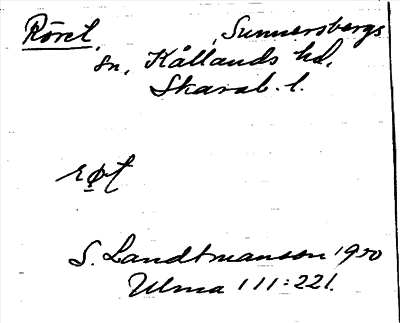 Röret, Sunnersbergs
sn, Kållands hd,
Skarab. l.
røt
S. Landtmanson 1950
Ulma 111:221.